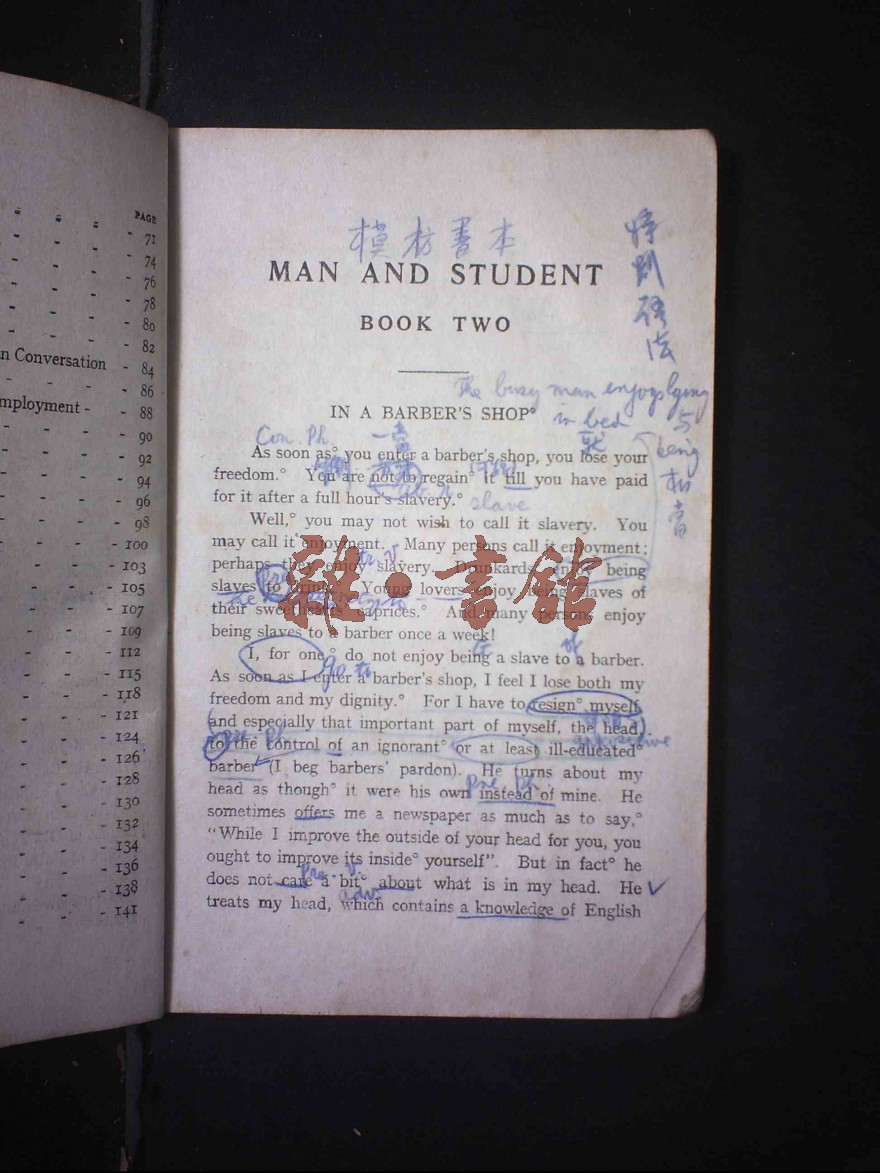 PAGE
71
74
76
78
80
82
n Conversation - 84
86
mployment - 88
90
92
94
96
98
100
103
105
107
109
112
115
118
121
124
126
128
130
132
134
136
138
141
模 仿 書 本
MAN AND STUDENT
BOOK TWO
特
別
语
法
The busy man enjoys lying
in bed
being
IN A BARBER'S SHOP°
Con. Ph.
As soon as° you enter a barber's shop, you lose your
freedom.° You are not to regain° it till you have paid
for it after a full hour's slavery.°
slave
Well,° you may not wish to call it slavery. You
may call it enjoyment. Many persons call it enjoyment;
perhaps they enjoy slavery. Drunkards enjoy being
slaves to drink. Young lovers enjoy being slaves of
their sweethearts' caprices.° And many persons enjoy
being slaves to a barber once a week!
I, for one,° do not enjoy being a slave to a barber.
go to
As soon as I enter a barber's shop, I feel I lose both my
freedom and my dignity.° For I have to resign° myself
(and especially that important part of myself, the head)
to the control of an ignorant° or at least ill-educated°
barber (I beg barbers' pardon). He turns about my
head as though° it were his own instead of mine. He
sometimes offers me a newspaper as much as to say,°
"While I improve the outside of your head for you, you
ought to improve its inside° yourself". But in fact° he
does not care a bit° about what is in my head. He
adv
treats my head, which contains a knowledge of English
雜·書館